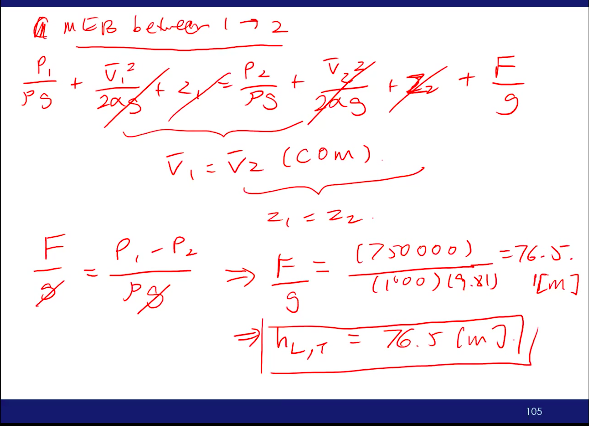 @ MEB between 1 → 2
P₁/ρg + V̄₁²/2αg + z₁ = P₂/ρg + V̄₂²/2αg + z₂ + F/g
V̄₁ = V̄₂ (COM).
z₁ = z₂.
F/g = P₁ - P₂/ρg ⇒ F/g = (750000)/(1000)(9.81) = 76.5. [m]
⇒ h_L,T = 76.5 [m].
105